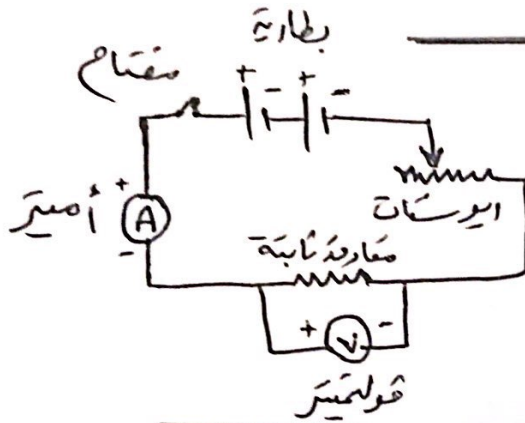 بطارية
+ - + -
مفتاح
+
أميتر
A
-
ريوستات
مقاومة ثابتة
+ V -
فولتميتر